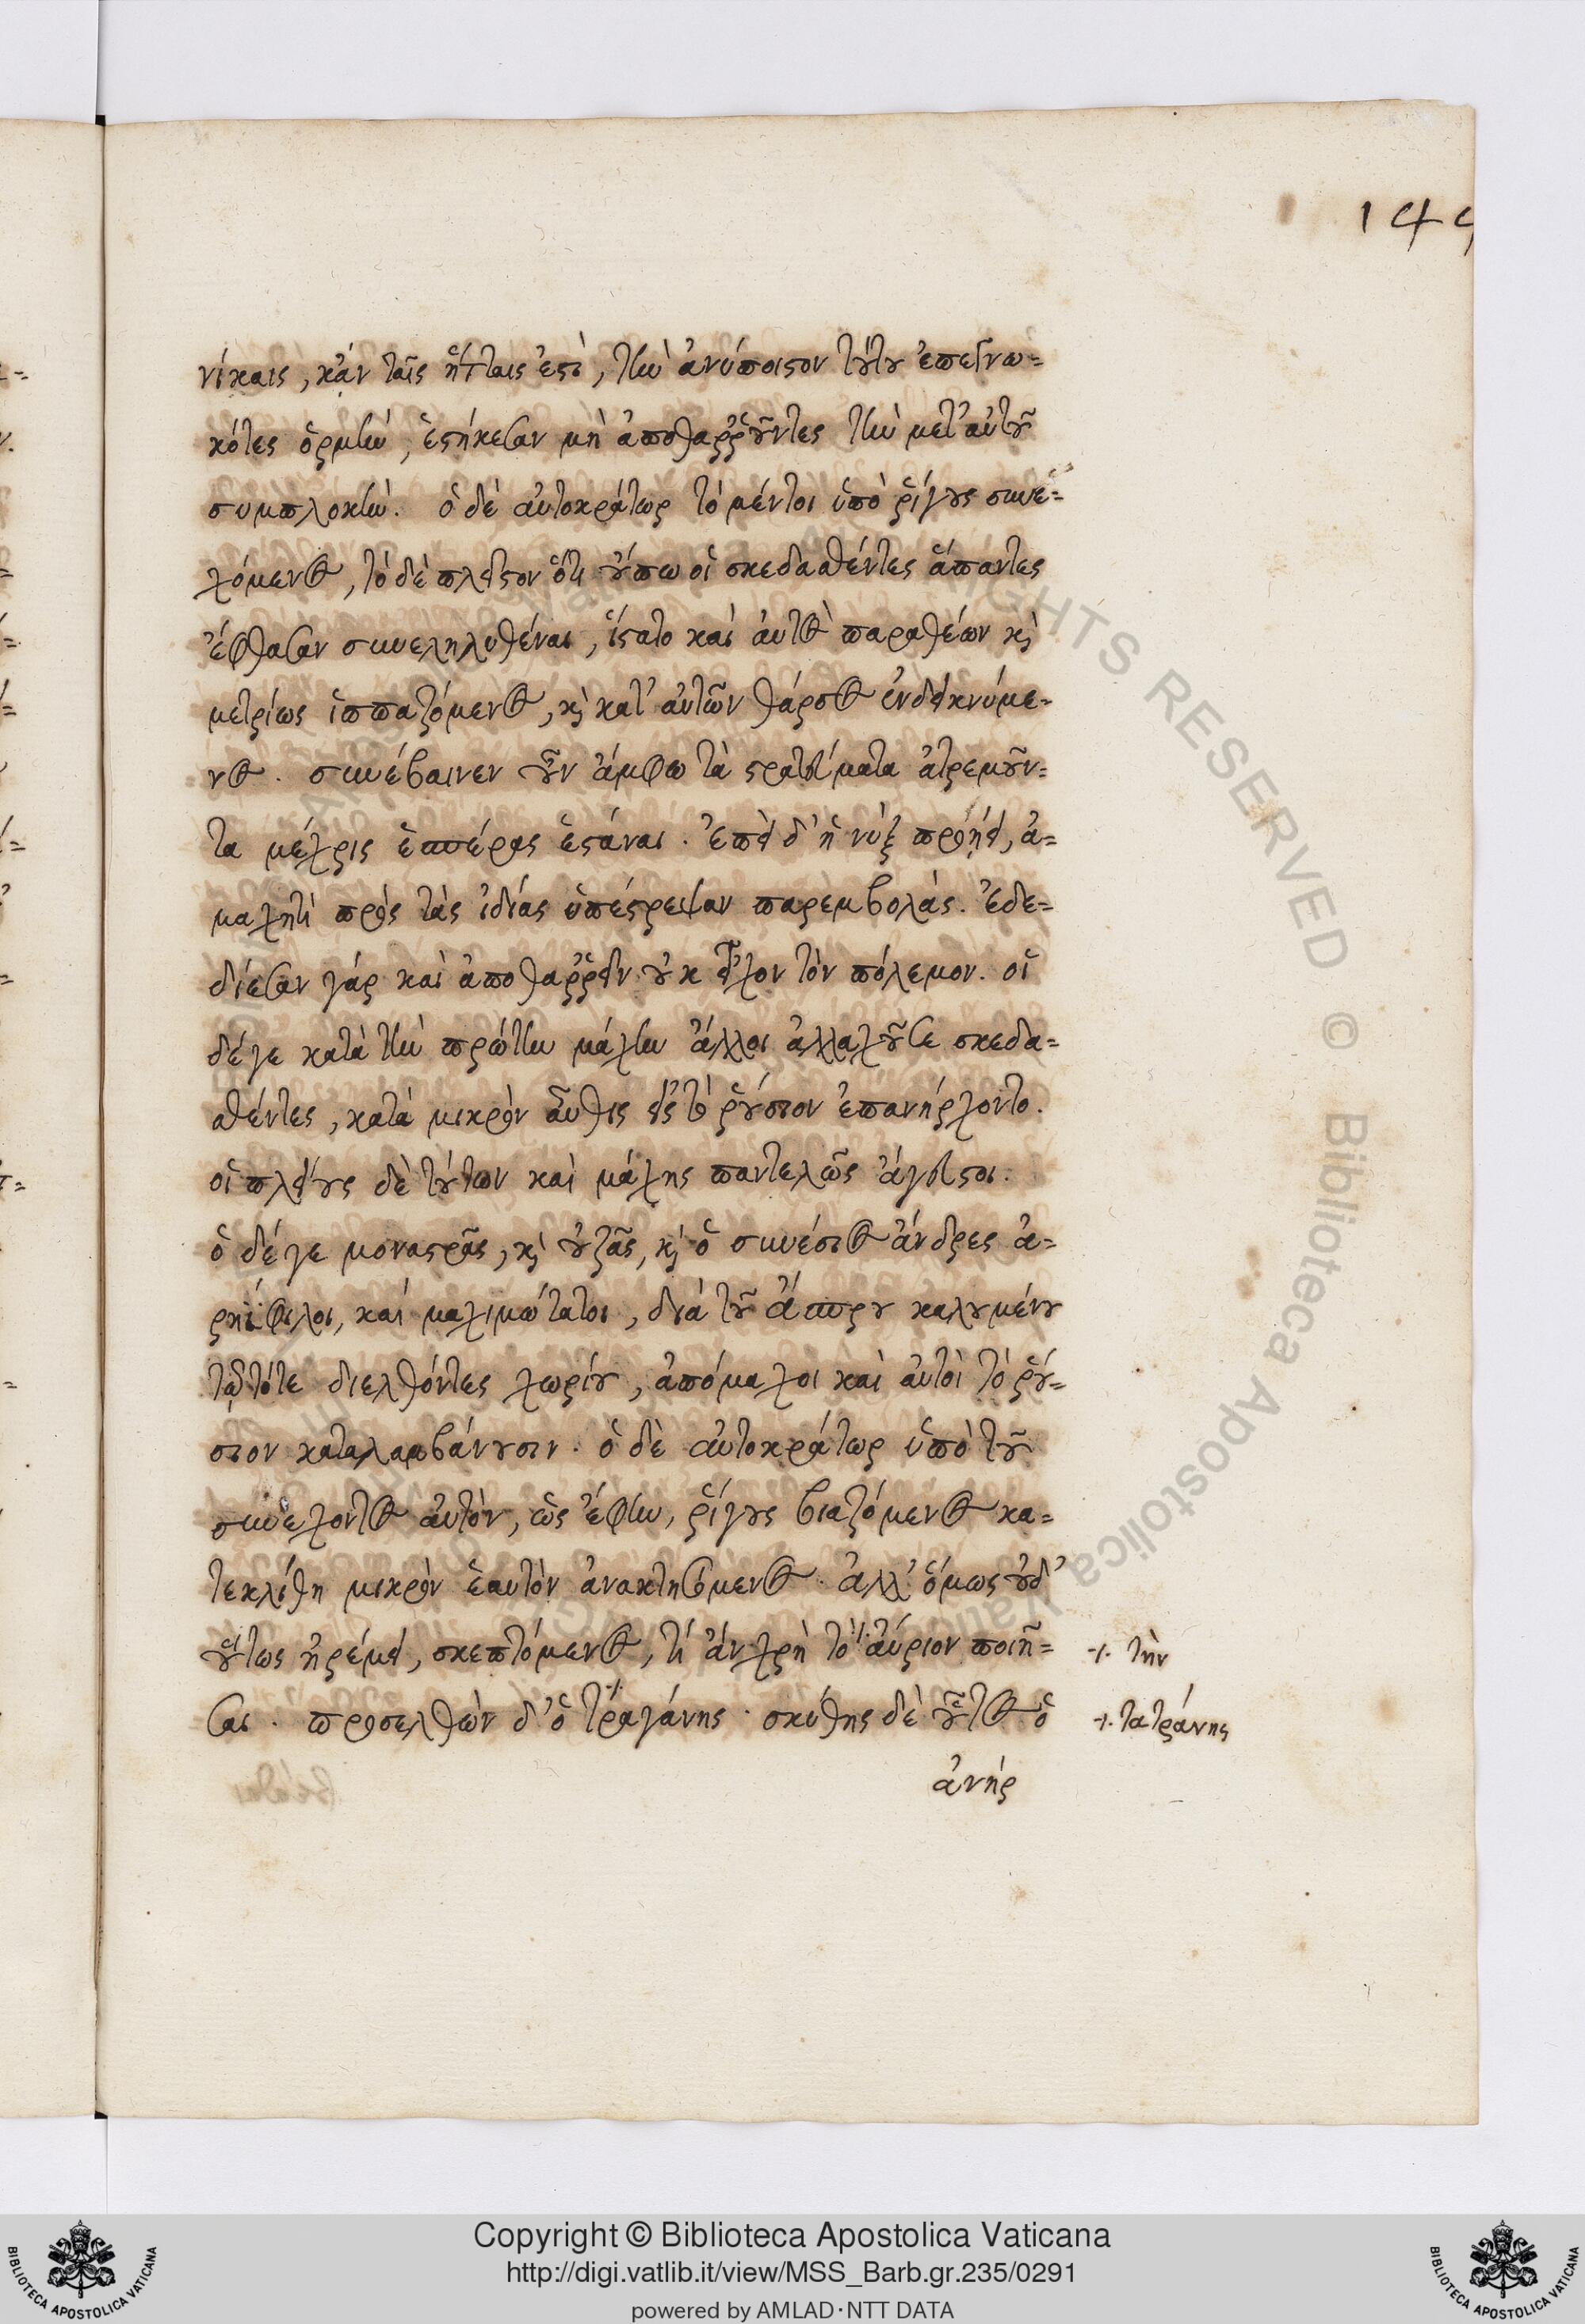 145
νίκαις, κἀν ταῖς ἥτταις ἐστὶ, τὴν ἀνύποιστον τούτου ἐπεγνω=
κότες ὁρμὴν, ἑστήκεσαν μὴ ἀποθαῤῥοῦντες τὴν μετ' αὐτοῦ
συμπλοκήν. ὁ δὲ αὐτοκράτωρ τὸ μέντοι ὑπὸ ῥίγους συνε=
χόμενος, τὸ δὲ πλεῖστον ὅτι οὔπω οἱ σκεδασθέντες ἅπαντες
ἔφθασαν συνεληλυθέναι, ἵστατο καὶ αὐτὸς παραθέων κὶ
μετρίως ἱππαζόμενος, κὶ κατ' αὐτῶν θάρσος ἐνδεικνύμε=
νος. συνέβαινεν οὖν ἄμφω τὰ στρατεύματα ἀτρεμοῦν=
τα μέχρις ἑσπέρας ἑστάναι. ἐπεὶ δ' ἡ νὺξ προῄει, ἀ=
μαχητὶ πρὸς τὰς ἰδίας ὑπέστρεψαν παρεμβολάς. ἐδε=
δίεσαν γὰρ καὶ ἀποθαῤῥεῖν οὐκ εἶχον τὸν πόλεμον. οἱ
δέ γε κατὰ τὴν πρώτην μάχην ἄλλοι ἀλλαχοῦσε σκεδα=
σθέντες, κατὰ μικρὸν αὖθις εἰς τὸ ῥούσιον ἐπανήρχοντο.
οἱ πλείους δὲ τούτων καὶ μάχης παντελῶς ἄγευστοι.
ὁ δέ γε μοναστρᾶς, κὶ οὐζᾶς, κὶ ὁ συνέσιος ἄνδρες ἀ=
ρηΐφιλοι, καὶ μαχιμώτατοι, διὰ τοῦ ἄσπρου καλουμένου
τῷ τότε διελθόντες χωρίου, ἀπόμαχοι καὶ αὐτοὶ τὸ ῥού=
σιον καταλαμβάνουσιν. ὁ δὲ αὐτοκράτωρ ὑπὸ τοῦ
συνέχοντος αὐτὸν, ὡς ἔφην, ῥίγους βιαζόμενος κα=
τεκλίθη μικρὸν ἑαυτὸν ἀνακτησόμενος. ἀλλ' ὅμως οὐδ'
οὕτως ἠρέμει, σκεπτόμενος, τί ἂν χρὴ τὸ αὔριον ποιῆ=
-/. τὴν
σαι. προσελθὼν δ' ὁ τραγάνης. σκύθης δὲ οὗτος ὁ
-/. τατράνης
ἀνήρ
Copyright © Biblioteca Apostolica Vaticana
http://digi.vatlib.it/view/MSS_Barb.gr.235/0291
powered by AMLAD·NTT DATA